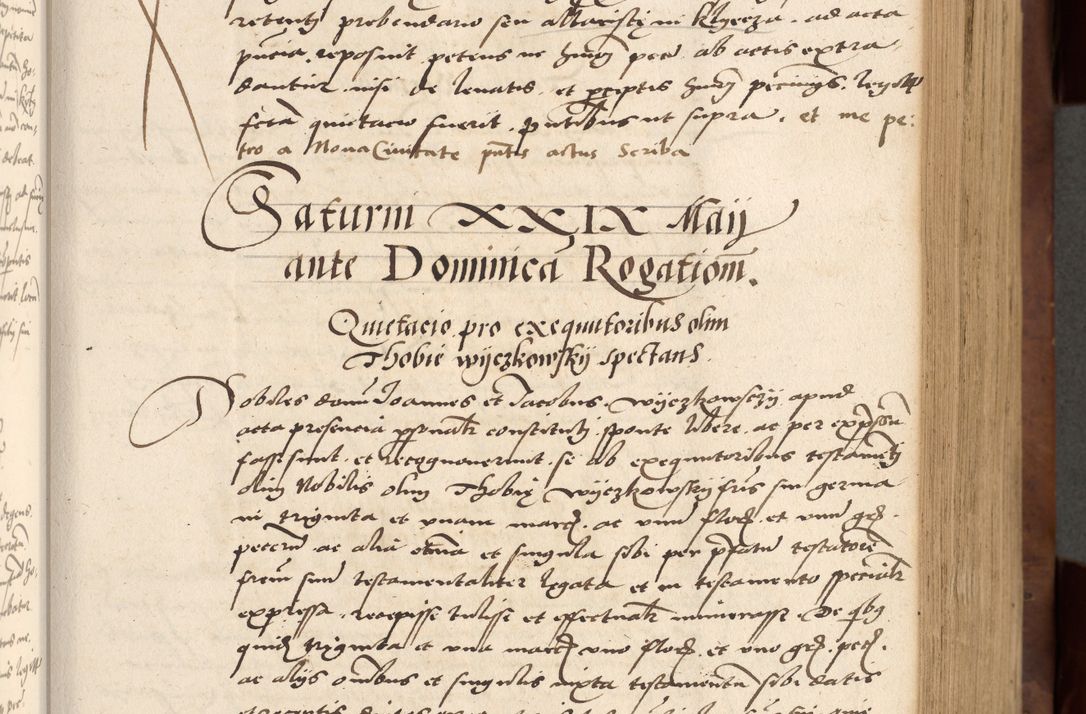 retenti prebendario seu altaristę in Klyecza, ad acta
pñcia reposuit petens ne hmõi pecũ ab actis extra
dantur nisi de levatis et pceptis hmõi pecuniys legitᷓ
fcta quietacio fuerit, pñtibus ut supra, et me pe:
tro a Nova Civitate pñtis actus scriba
Saturni XXIX Maij
ante Dominicã Rogationũ.
Quietacio pro exequutoribus olim
Thobie Wyczkowskÿ spectans.
Nobiles domi Joannes et Jacobus Wyczkowsczy apud
acta presencia psonalr constituti sponte libere ac per expssũ
fassi sunt et recognoverunt se ab exequutoribus testamẽti
olim Nobilis olim Thobię Wyczkowskÿ fris sui germa
ni triginta et unam marcẽ ac unũ floẽ et unũ gẽ
pecuniẽ ac alia omnia et singula sibi per pfatũ testatorẽ
frem suũ testamentaliter legata et in testamento specialr
expressa, recepisse tulisse et effectualr
De qbq
quidẽ triginta et una marcẽ uno floẽ et uno gẽ pecẽ
ac alÿs omibus et singulis iuxta testamentũ sibi datis